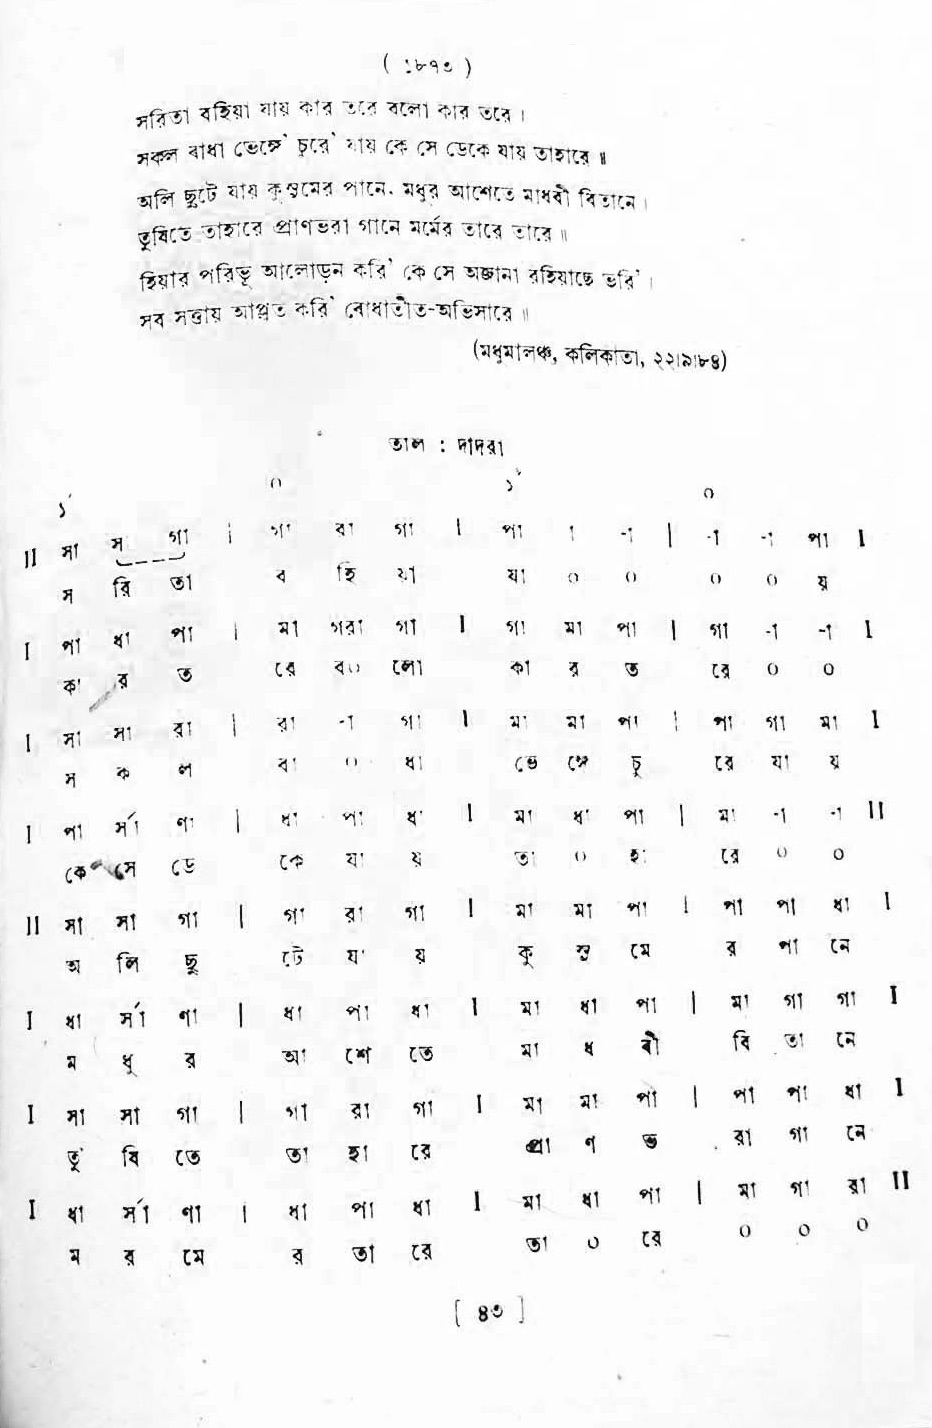 ( ১৮৭৩ )
সরিতা বহিয়া যায় কার তরে বলো কার তরে ।
সকল বাধা ভেঙ্গে' চুরে' যায় কে সে ডেকে যায় তাহারে ॥
অলি ছুটে যায় কুসুমের পানে, মধুর আশেতে মাধবী বিতানে ।
তুষিতে তাহারে প্রাণভরা গানে মর্মের তারে তারে ॥
হিয়ার পরিভূ আলোড়ন করি' কে সে অজানা রহিয়াছে ভরি' ।
সব সত্তায় আপ্লুত করি' বোধাতীত-অভিসারে ॥
(মধুমালঞ্চ, কলিকাতা, ২২।৯।৮৪)
তাল : দাদরা
১´ ০ ১´ ০
II সা স গা | গা রা গা I পা া -া | -া -া পা I
স রি তা ব হি য়া যা ০ ০ ০ ০ য়
I পা ধা পা | মা গরা গা I গা মা পা | গা -া -া I
কা র ত রে ব০ লো কা র ত রে ০ ০
I সা সা রা | রা -া গা I মা মা পা | পা গা মা I
স ক ল বা ০ ধা ভে ঙ্গে চু রে যা য়
I পা র্সা ণা | ধা পা ধা I মা ধা পা | মা -া -া II
কে সে ডে কে যা য় তা ০ হা রে ০ ০
II সা সা গা | গা রা গা I মা মা পা | পা পা ধা I
অ লি ছু টে যা য় কু সু মে র পা নে
I ধা র্সা ণা | ধা পা ধা I মা ধা পা | মা গা গা I
ম ধু র আ শে তে মা ধ বী বি তা নে
I সা সা গা | গা রা গা I মা মা পা | পা পা ধা I
তু ষি তে তা হা রে প্রা ণ ভ রা গা নে
I ধা র্সা ণা | ধা পা ধা I মা ধা পা | মা গা রা II
ম র মে র তা রে তা ০ রে ০ ০ ০
[ ৪৩ ]